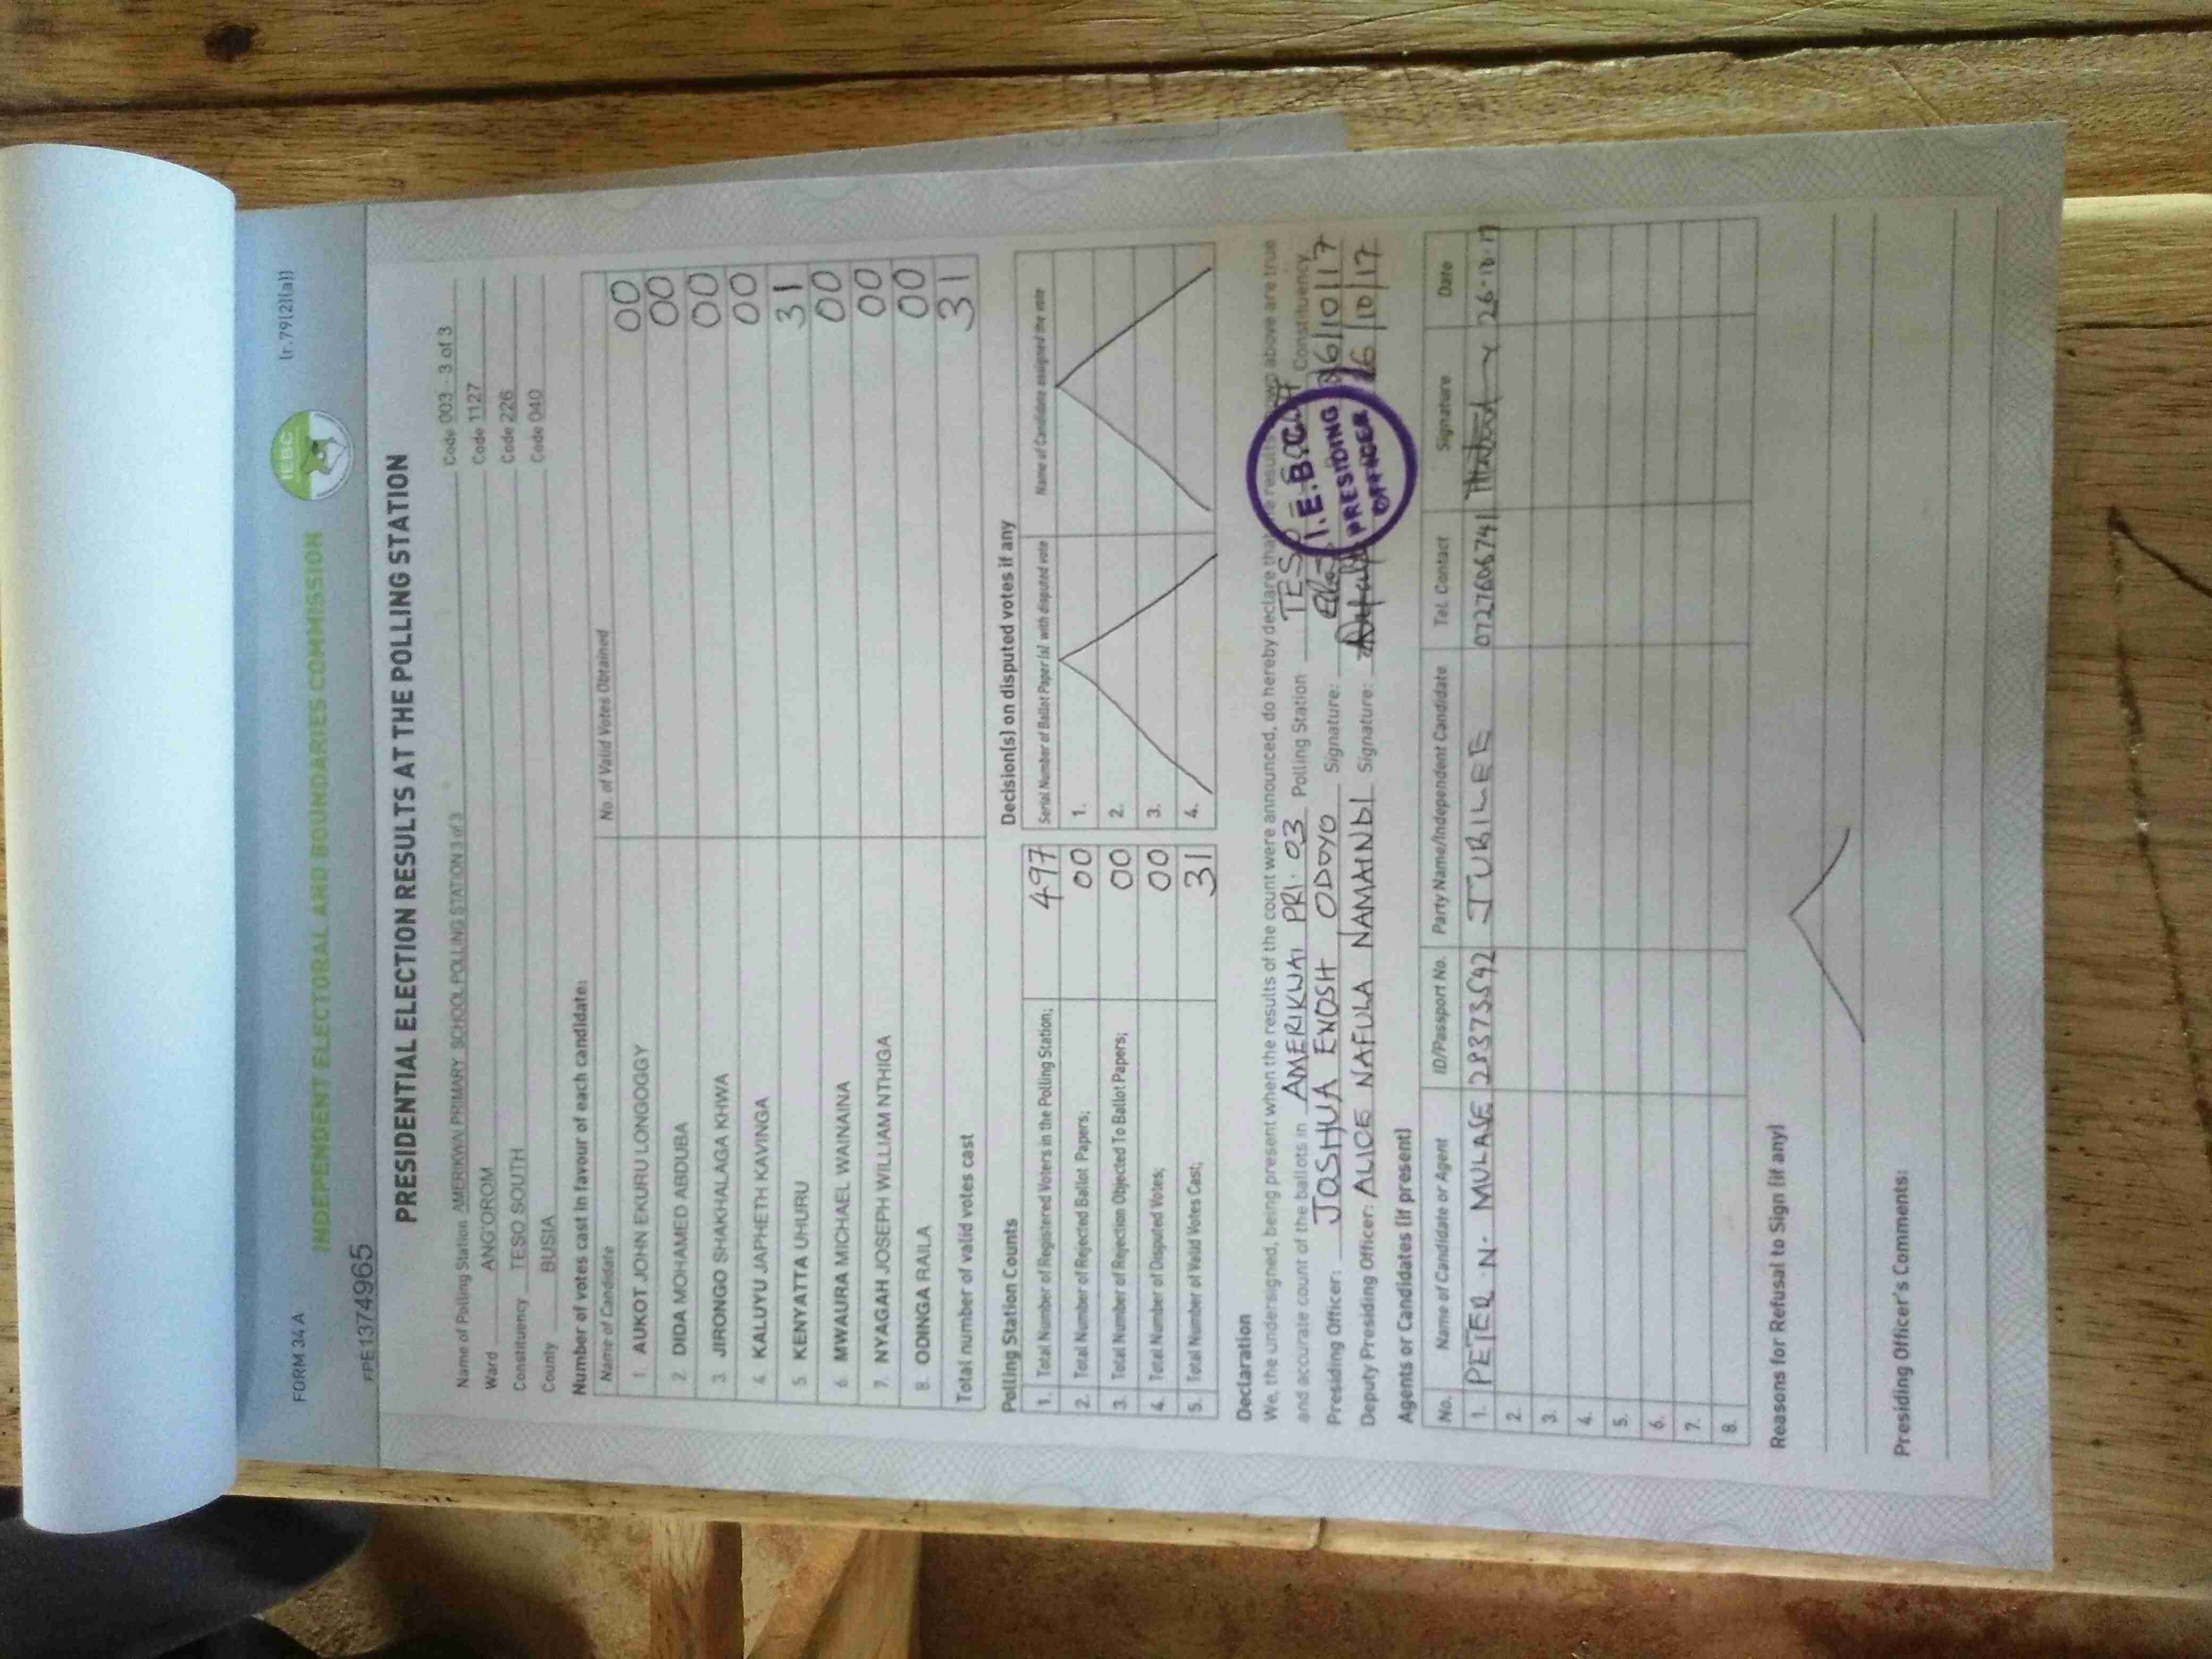 FORM 34 A
(r.79(2)(a))
IEBC
INDEPENDENT ELECTORAL AND BOUNDARIES COMMISSION
FPE1374965
PRESIDENTIAL ELECTION RESULTS AT THE POLLING STATION
Name of Polling Station AMERIKWAI PRIMARY SCHOOL POLLING STATION 3 of 3 Code 003 - 3 of 3
Ward ANG'OROM Code 1127
Constituency TESO SOUTH Code 226
County BUSIA Code 040
Number of votes cast in favour of each candidate:
Name of Candidate No. of Valid Votes Obtained
1. AUKOT JOHN EKURU LONGOGGY 00
2. DIDA MOHAMED ABDUBA 00
3. JIRONGO SHAKHALAGA KHWA 00
4. KALUYU JAPHETH KAVINGA 00
5. KENYATTA UHURU 31
6. MWAURA MICHAEL WAINAINA 00
7. NYAGAH JOSEPH WILLIAM NTHIGA 00
8. ODINGA RAILA 00
Total number of valid votes cast 31
Polling Station Counts
1. Total Number of Registered Voters in the Polling Station; 497
2. Total Number of Rejected Ballot Papers; 00
3. Total Number of Rejection Objected To Ballot Papers; 00
4. Total Number of Disputed Votes; 00
5. Total Number of Valid Votes Cast; 31
Decision(s) on disputed votes if any
Serial Number of Ballot Paper (s) with disputed vote Name of Candidate assigned the vote
1.
2.
3.
4.
Declaration
We, the undersigned, being present when the results of the count were announced, do hereby declare that the results shown above are true
and accurate count of the ballots in AMERIKWAI PRI. 03 Polling Station TESO Constituency.
Presiding Officer: JOSHUA ENOSH ODDYO Signature: 26/10/17
Deputy Presiding Officer: ALICE NAFULA NAMAINDI Signature: 26/10/17
I.E.B.C.
PRESIDING
OFFICER
Agents or Candidates (if present)
No. Name of Candidate or Agent ID/Passport No. Party Name/Independent Candidate Tel. Contact Signature Date
1. PETER N. MULASE 28373592 JUBILEE 0727606741 26.10.17
2.
3.
4.
5.
6.
7.
8.
Reasons for Refusal to Sign (if any)
Presiding Officer's Comments: